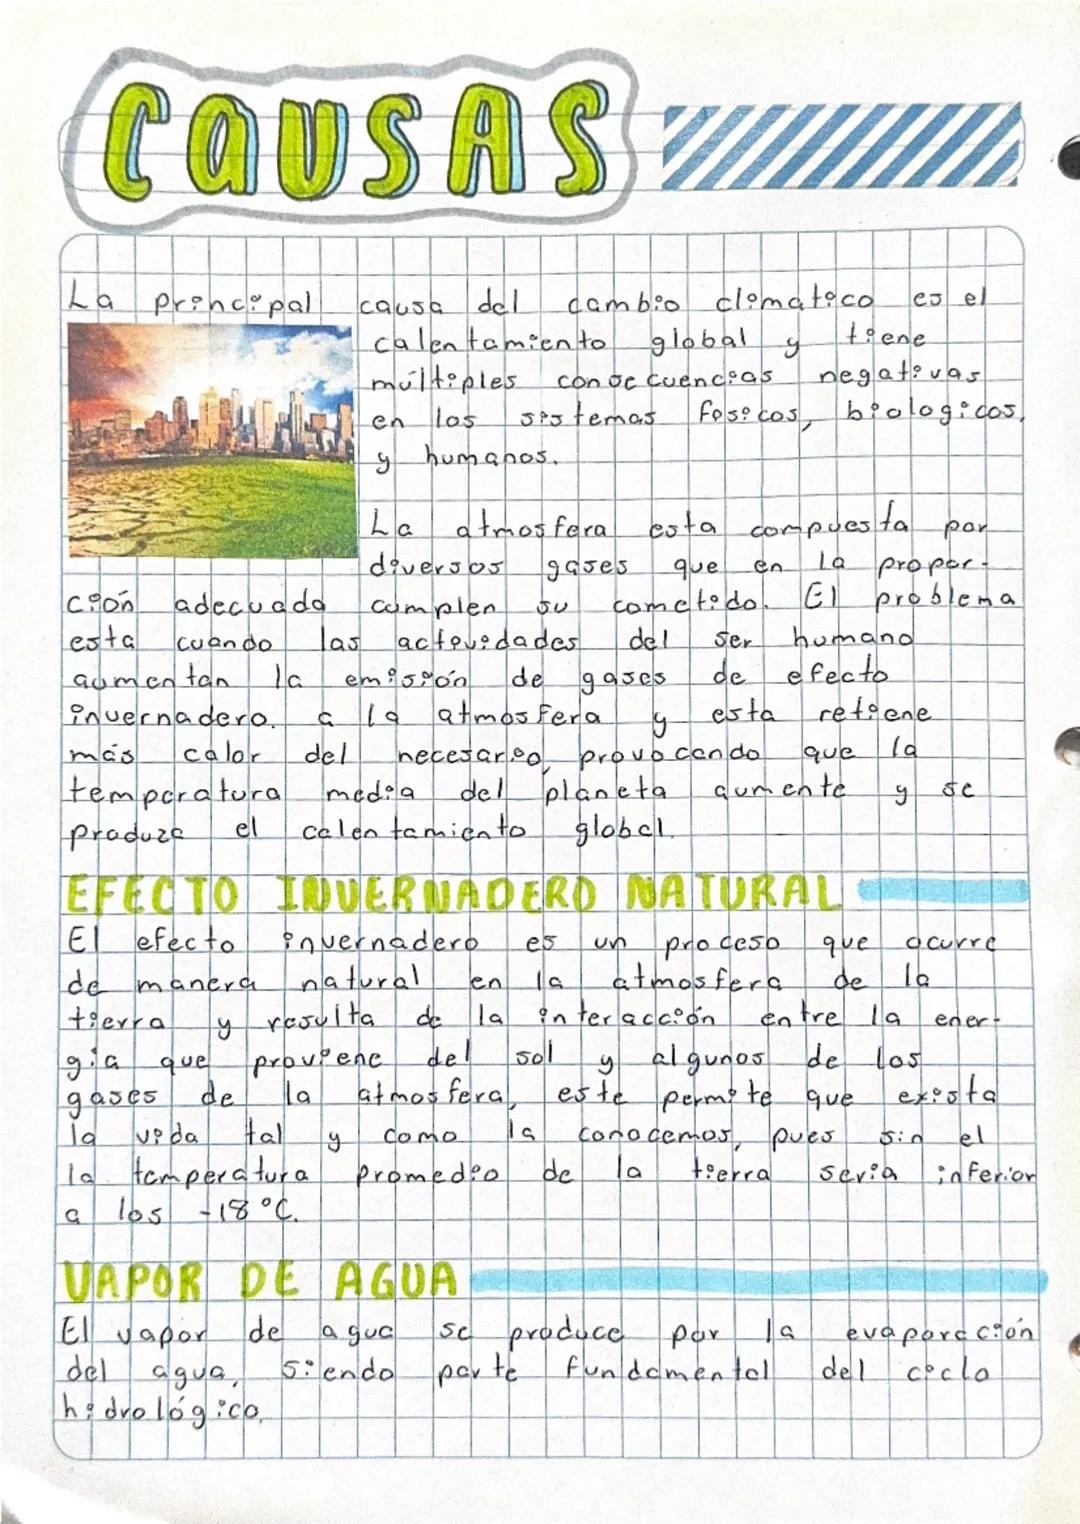 CAUSAS
La principal causa del cambio climatico es el
calentamiento global y tiene
múltiples consecuencias negativas
en los sistemas fisicos, biologicos,
y humanos.
La atmosfera esta compuesta por
diversos gases que en la propor-
ción adecuada cumplen su cometido. El problema
esta cuando las actividades del ser humano
aumentan la emisión de gases de efecto
invernadero. a la atmosfera y esta retiene
más calor del necesario, provocando que la
temperatura media del planeta aumente y se
produza el calentamiento global.
EFECTO INVERNADERO NATURAL
El efecto invernadero es un proceso que ocurre
de manera natural en la atmosfera de la
tierra y resulta de la interacción entre la ener-
gia que proviene del sol y algunos de los
gases de la atmosfera, este permite que exista
la vida tal y como la conocemos, pues sin el
la temperatura promedio de la tierra seria inferior
a los -18 °C.
VAPOR DE AGUA
El vapor de agua se produce por la evaporación
del agua, siendo parte fundamental del ciclo
hidrológico.